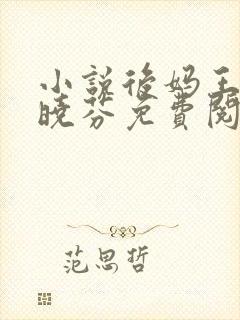 小说后妈王
晓芬免费阅
范思哲